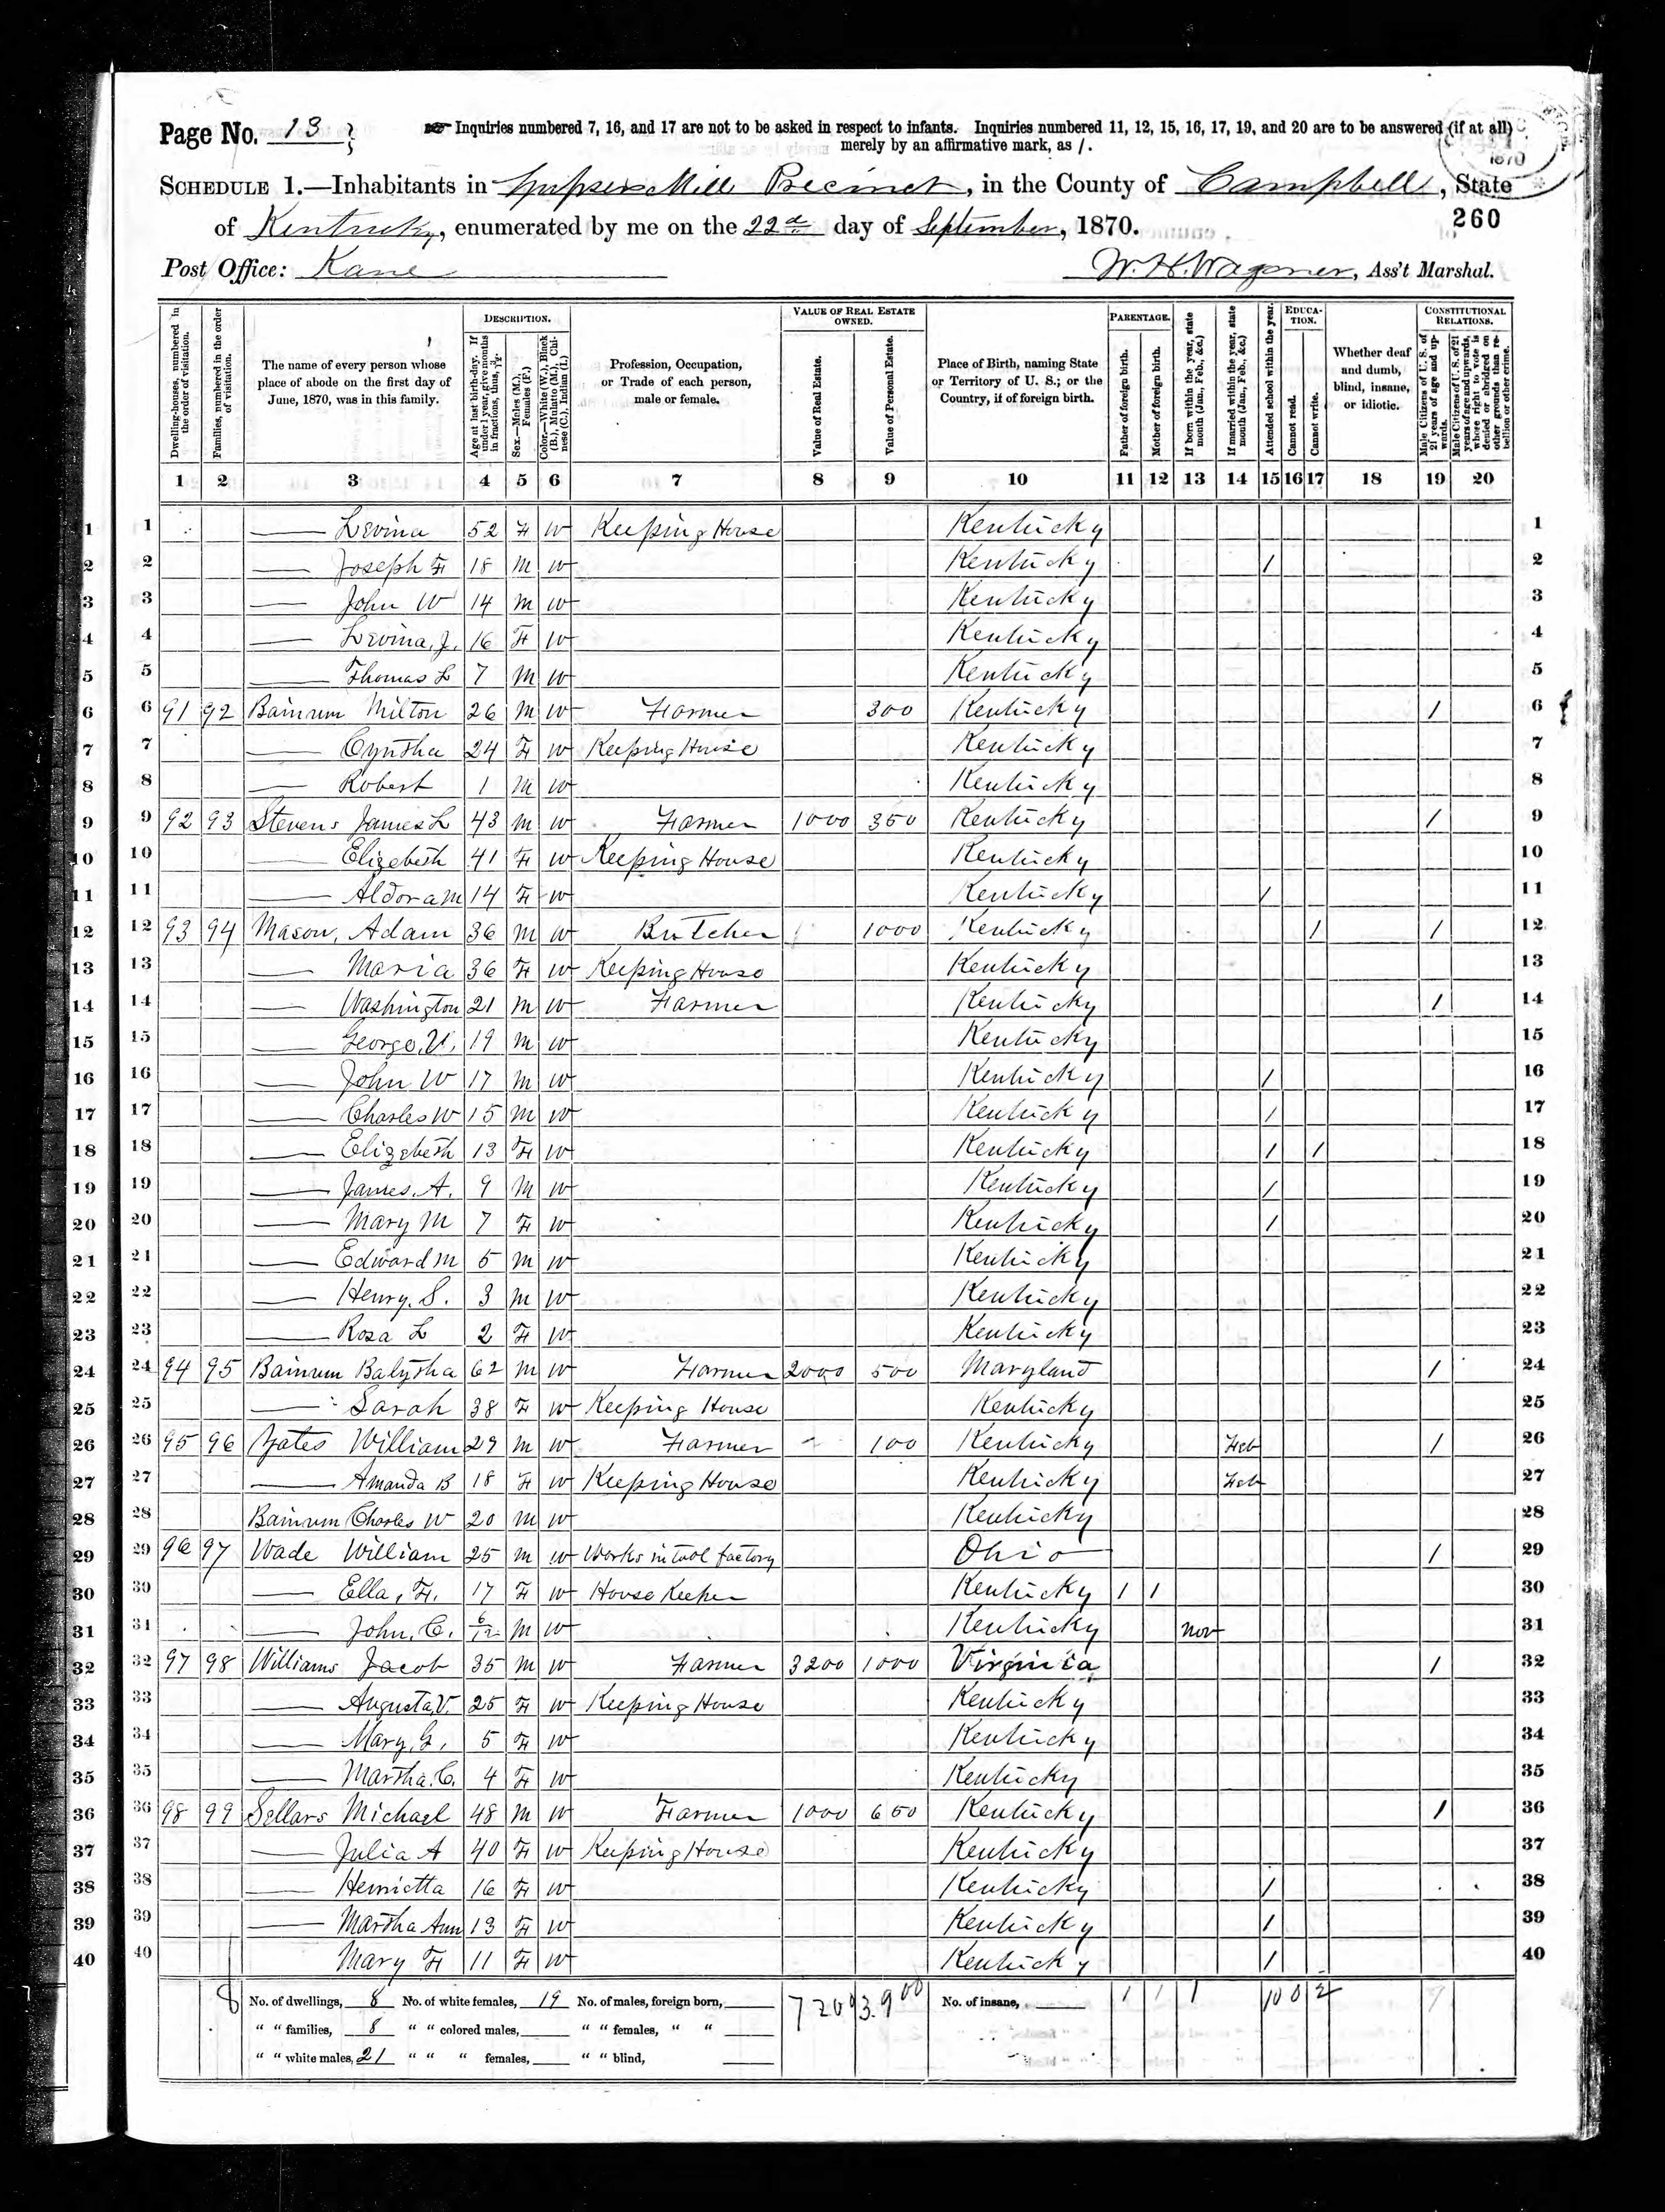 Page No. 13
Inquiries numbered 7, 16, and 17 are not to be asked in respect to infants. Inquiries numbered 11, 12, 15, 16, 17, 19, and 20 are to be answered (if at all)
merely by an affirmative mark, as /.
1870
SCHEDULE 1.—Inhabitants in Mill Precinct, in the County of Campbell, State
260
of Kentucky, enumerated by me on the 22d day of September, 1870.
Post Office: Kane
W. H. Wagoner, Ass't Marshal.
Dwelling-houses, numbered in the order of visitation.
Families, numbered in the order of visitation.
The name of every person whose place of abode on the first day of June, 1870, was in this family.
DESCRIPTION.
Age at last birth-day. If under 1 year, give months in fractions, thus, 3/12.
Sex.—Males (M.), Females (F.)
Color.—White (W.), Black (B.), Mulatto (M.), Chinese (C.), Indian (I.)
Profession, Occupation, or Trade of each person, male or female.
VALUE OF REAL ESTATE OWNED.
Value of Real Estate.
Value of Personal Estate.
Place of Birth, naming State or Territory of U. S.; or the Country, if of foreign birth.
PARENTAGE.
Father of foreign birth.
Mother of foreign birth.
If born within the year, state month (Jan., Feb., &c.)
If married within the year, state month (Jan., Feb., &c.)
Attended school within the year.
EDUCATION.
Cannot read.
Cannot write.
Whether deaf and dumb, blind, insane, or idiotic.
CONSTITUTIONAL RELATIONS.
Male Citizens of U. S. of 21 years of age and upwards.
Male Citizens of U. S. of 21 years of age and upwards, whose right to vote is denied or abridged on other grounds than rebellion or other crime.
1 2 3 4 5 6 7 8 9 10 11 12 13 14 15 16 17 18 19 20
1 1 —— Levina 52 F W Keeping House Kentucky 1
2 2 —— Joseph F 18 M W Kentucky / 2
3 3 —— John W 14 M W Kentucky 3
4 4 —— Levina, J. 16 F W Kentucky 4
5 5 —— Thomas L 7 M W Kentucky 5
6 6 91 92 Bainum Milton 26 M W Farmer 300 Kentucky / 6
7 7 —— Cyntha 24 F W Keeping House Kentucky 7
8 8 —— Robert 1 M W Kentucky 8
9 9 92 93 Stevens James L 43 M W Farmer 1000 350 Kentucky / 9
10 10 —— Elizebeth 41 F W Keeping House Kentucky 10
11 11 —— Aldora M 14 F W Kentucky / 11
12 12 93 94 Mason, Adam 36 M W Butcher 1000 Kentucky / / 12
13 13 —— Maria 36 F W Keeping House Kentucky 13
14 14 —— Washington 21 M W Farmer Kentucky / 14
15 15 —— George, 19 M W Kentucky 15
16 16 —— John W 17 M W Kentucky / 16
17 17 —— Charles W 15 M W Kentucky / 17
18 18 —— Elizebeth 13 F W Kentucky / / 18
19 19 —— James. A. 9 M W Kentucky / 19
20 20 —— Mary M 7 F W Kentucky / 20
21 21 —— Edward M 5 M W Kentucky 21
22 22 —— Henry. S. 3 M W Kentucky 22
23 23 —— Rosa L 2 F W Kentucky 23
24 24 94 95 Bainum Balytha 62 M W Farmer 2000 500 Maryland / 24
25 25 —— Sarah 38 F W Keeping House Kentucky 25
26 26 95 96 Yates William 29 M W Farmer 100 Kentucky Feb / 26
27 27 —— Amanda B 18 F W Keeping House Kentucky Feb 27
28 28 Bainum Charles W 20 M W Kentucky 28
29 29 96 97 Wade William 25 M W Works in tool factory Ohio / 29
30 30 —— Ella, F. 17 F W House Keeper Kentucky 1 1 30
31 31 —— John, C. 6/12 M W Kentucky Nov 31
32 32 97 98 Williams Jacob 35 M W Farmer 3200 1000 Virginia / 32
33 33 —— Augusta, V. 25 F W Keeping House Kentucky 33
34 34 —— Mary, G, 5 F W Kentucky 34
35 35 —— Martha. C. 4 F W Kentucky 35
36 36 98 99 Sellars Michael 48 M W Farmer 1000 650 Kentucky / 36
37 37 —— Julia A 40 F W Keeping House Kentucky 37
38 38 —— Henrietta 16 F W Kentucky / 38
39 39 —— Martha Ann 13 F W Kentucky / 39
40 40 Mary F 11 F W Kentucky / 40
8 No. of dwellings, 8 No. of white females, 19 No. of males, foreign born, 7200 3.900 No. of insane, 1 1 1 10 0 2 9
" " families, 8 " " colored males, " " females, " "
" " white males, 21 " " " females, " " blind,